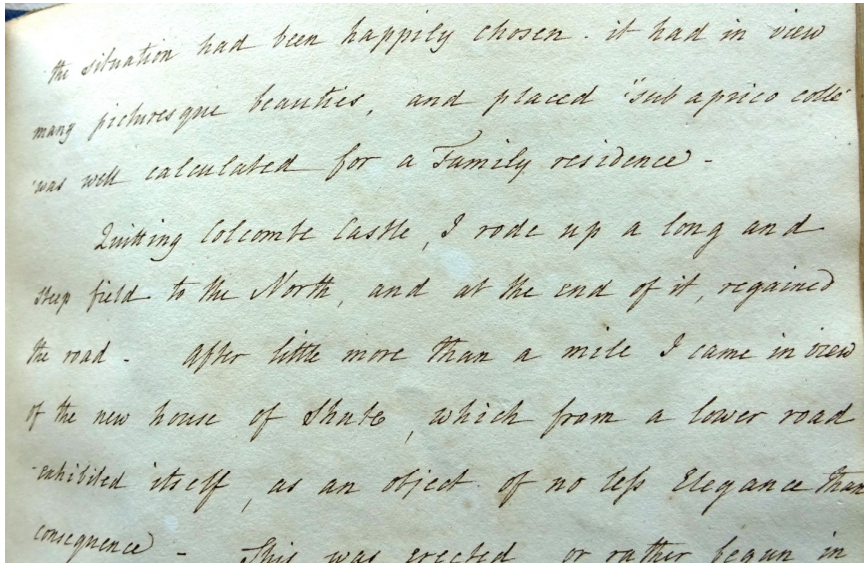 the situation had been happily chosen. it had in view
many picturesque beauties, and placed "sub aprico colle"
was well calculated for a Family residence -
Quitting Colcombe Castle, I rode up a long and
steep field to the North, and at the end of it, regained
the road - after little more than a mile I came in view
of the new house of Shute, which from a lower road
exhibited itself, as an object of no less Elegance than
consequence - This was erected or rather begun in